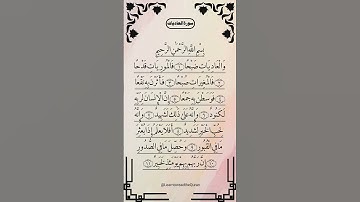 سورة العاديات
بِسْمِ اللَّهِ الرَّحْمَٰنِ الرَّحِيمِ
وَالْعَادِيَاتِ ضَبْحًا ١ فَالْمُورِيَاتِ قَدْحًا
٢ فَالْمُغِيرَاتِ صُبْحًا ٣ فَأَثَرْنَ بِهِ نَقْعًا
٤ فَوَسَطْنَ بِهِ جَمْعًا ٥ إِنَّ الْإِنْسَانَ لِرَبِّهِ
لَكَنُودٌ ٦ وَإِنَّهُ عَلَىٰ ذَٰلِكَ لَشَهِيدٌ ٧ وَإِنَّهُ
لِحُبِّ الْخَيْرِ لَشَدِيدٌ ٨ أَفَلَا يَعْلَمُ إِذَا بُعْثِرَ
مَا فِي الْقُبُورِ ٩ وَحُصِّلَ مَا فِي الصُّدُورِ
١٠ إِنَّ رَبَّهُمْ بِهِمْ يَوْمَئِذٍ لَخَبِيرٌ ١١